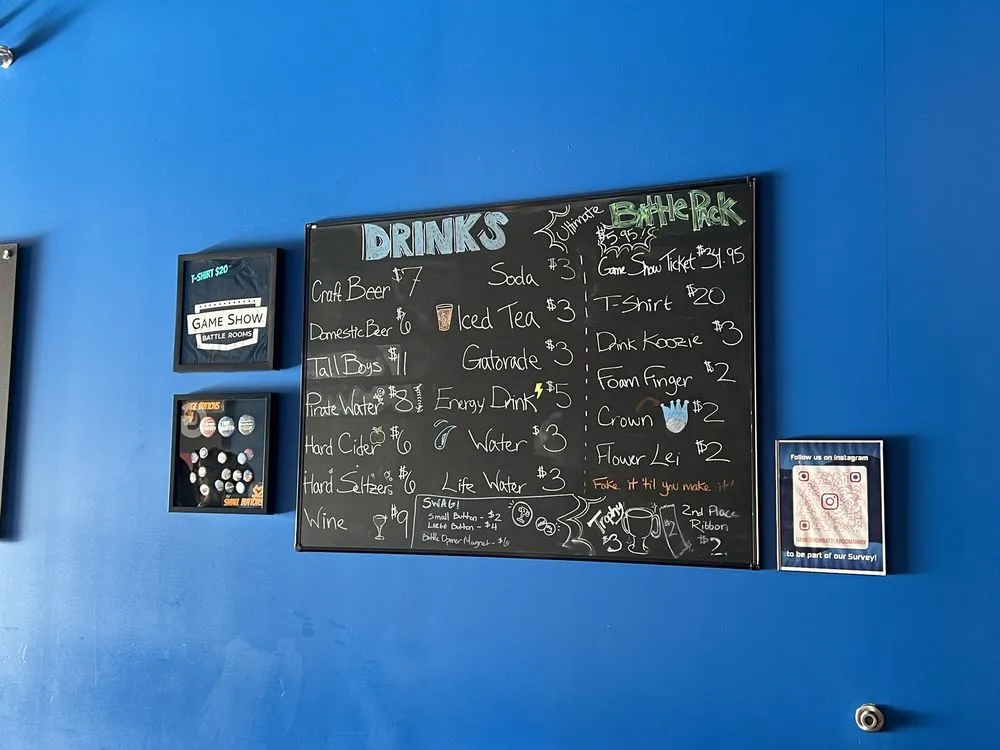 T-SHIRT $20
GAME SHOW
BATTLE ROOMS
BUTTONS
SMALL BUTTONS
DRINKS
Craft Beer $7
Domestic Beer $6
Tall Boys $11
Pirate Water $8
Hard Cider $6
Hard Seltzers $6
Wine $9
Soda $3
Iced Tea $3
Gatorade $3
Energy Drink $5
Water $3
Life Water $3
SWAG!
Small Button - $2
Large Button - $4
Bottle Opener Magnet - $6
Ultimate Battle Pack
Game Show Ticket $34.95
T-Shirt $20
Drink Koozie $3
Foam Finger $2
Crown $2
Flower Lei $2
Fake it 'til you make it!
Trophy $3
2nd Place Ribbon $2
Follow us on Instagram
GAMESHOWBATTLEROOMSINDY
to be part of our Survey!